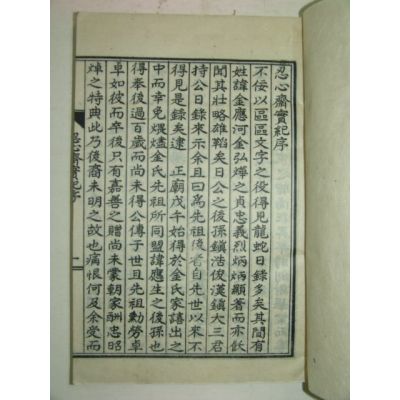 忍心齋實紀序
不佞以區區文字之役得見龍蛇日錄多矣其間有
姓諱金應河金弘燁之貞忠義烈炳炳顯著而亦飫
聞其壯略雄韜矣日金公之後孫鎭浩俊漢鎭大三君
持公日錄來示余且曰爲先祖後者自先世以來不
得見是錄矣逮　正廟戊午始得於金氏家譄出之
中而幸免煨燼金氏先祖所同盟諱應生之後孫也
得奉後過百歲而尚未得公傳于世且先祖勳勞卓
卓如彼而卒後只有嘉善之贈尚未蒙朝家酬忠昭
焯之特典此乃後裔未明之故也痛恨何及余受而
忍心齋實紀序
一